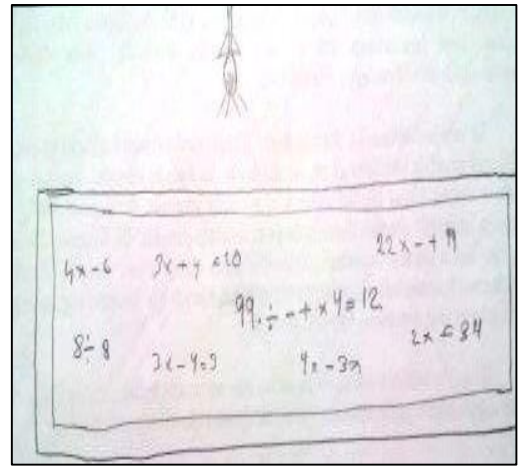 4x-6 3x+y=10 22x-+19
99.÷-+x4=12
8÷8 3x-4=3 4x-3x 2x=34